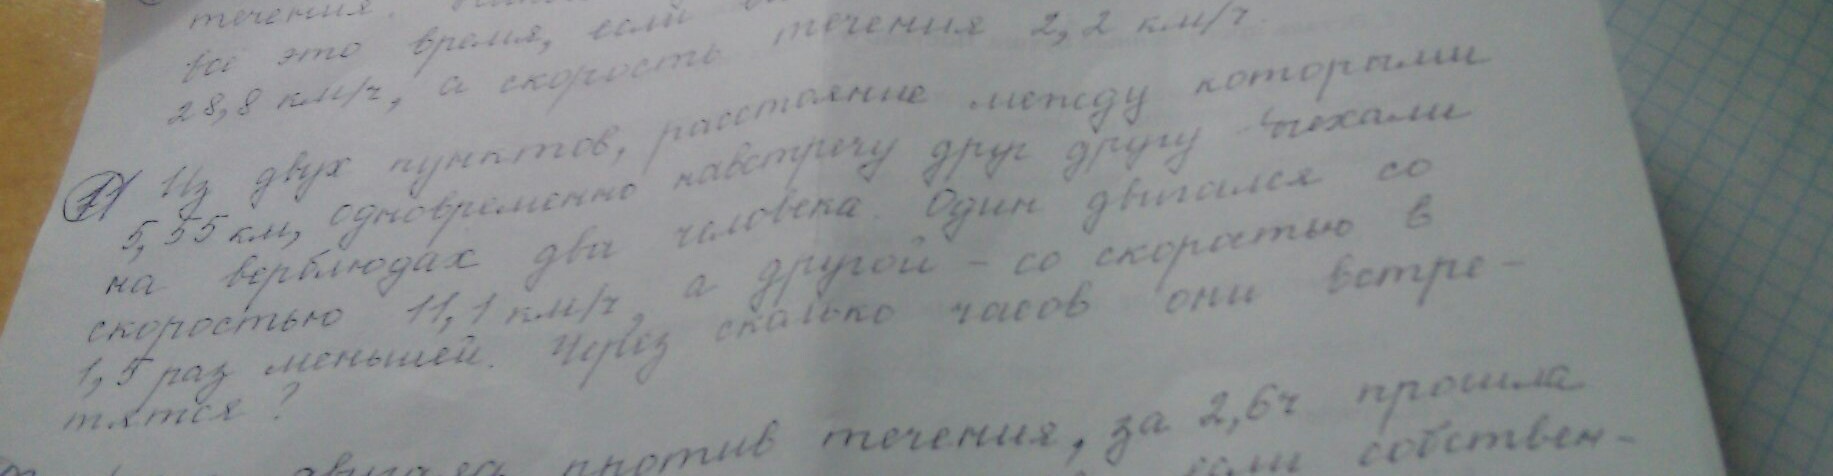 течения.
всё это время, если
28,8 км/ч, а скорость течения 2,2 км/ч.
Из двух пунктов, расстояние между которыми
5,55 км, одновременно навстречу друг другу выехали
на верблюдах два человека. Один двигался со
скоростью 11,1 км/ч, а другой – со скоростью в
1,5 раз меньшей. Через сколько часов они встре-
тятся?
двигаясь против течения, за 2,6ч прошла
если собствен-